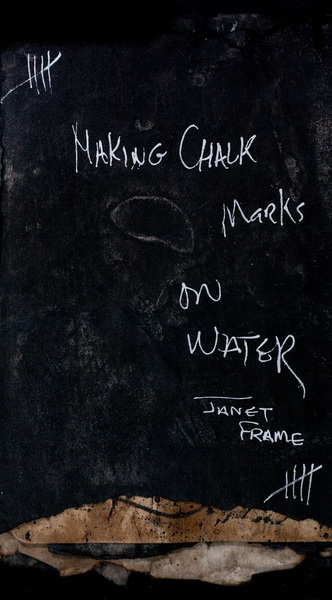 Making Chalk
Marks
on
Water
Janet
Frame